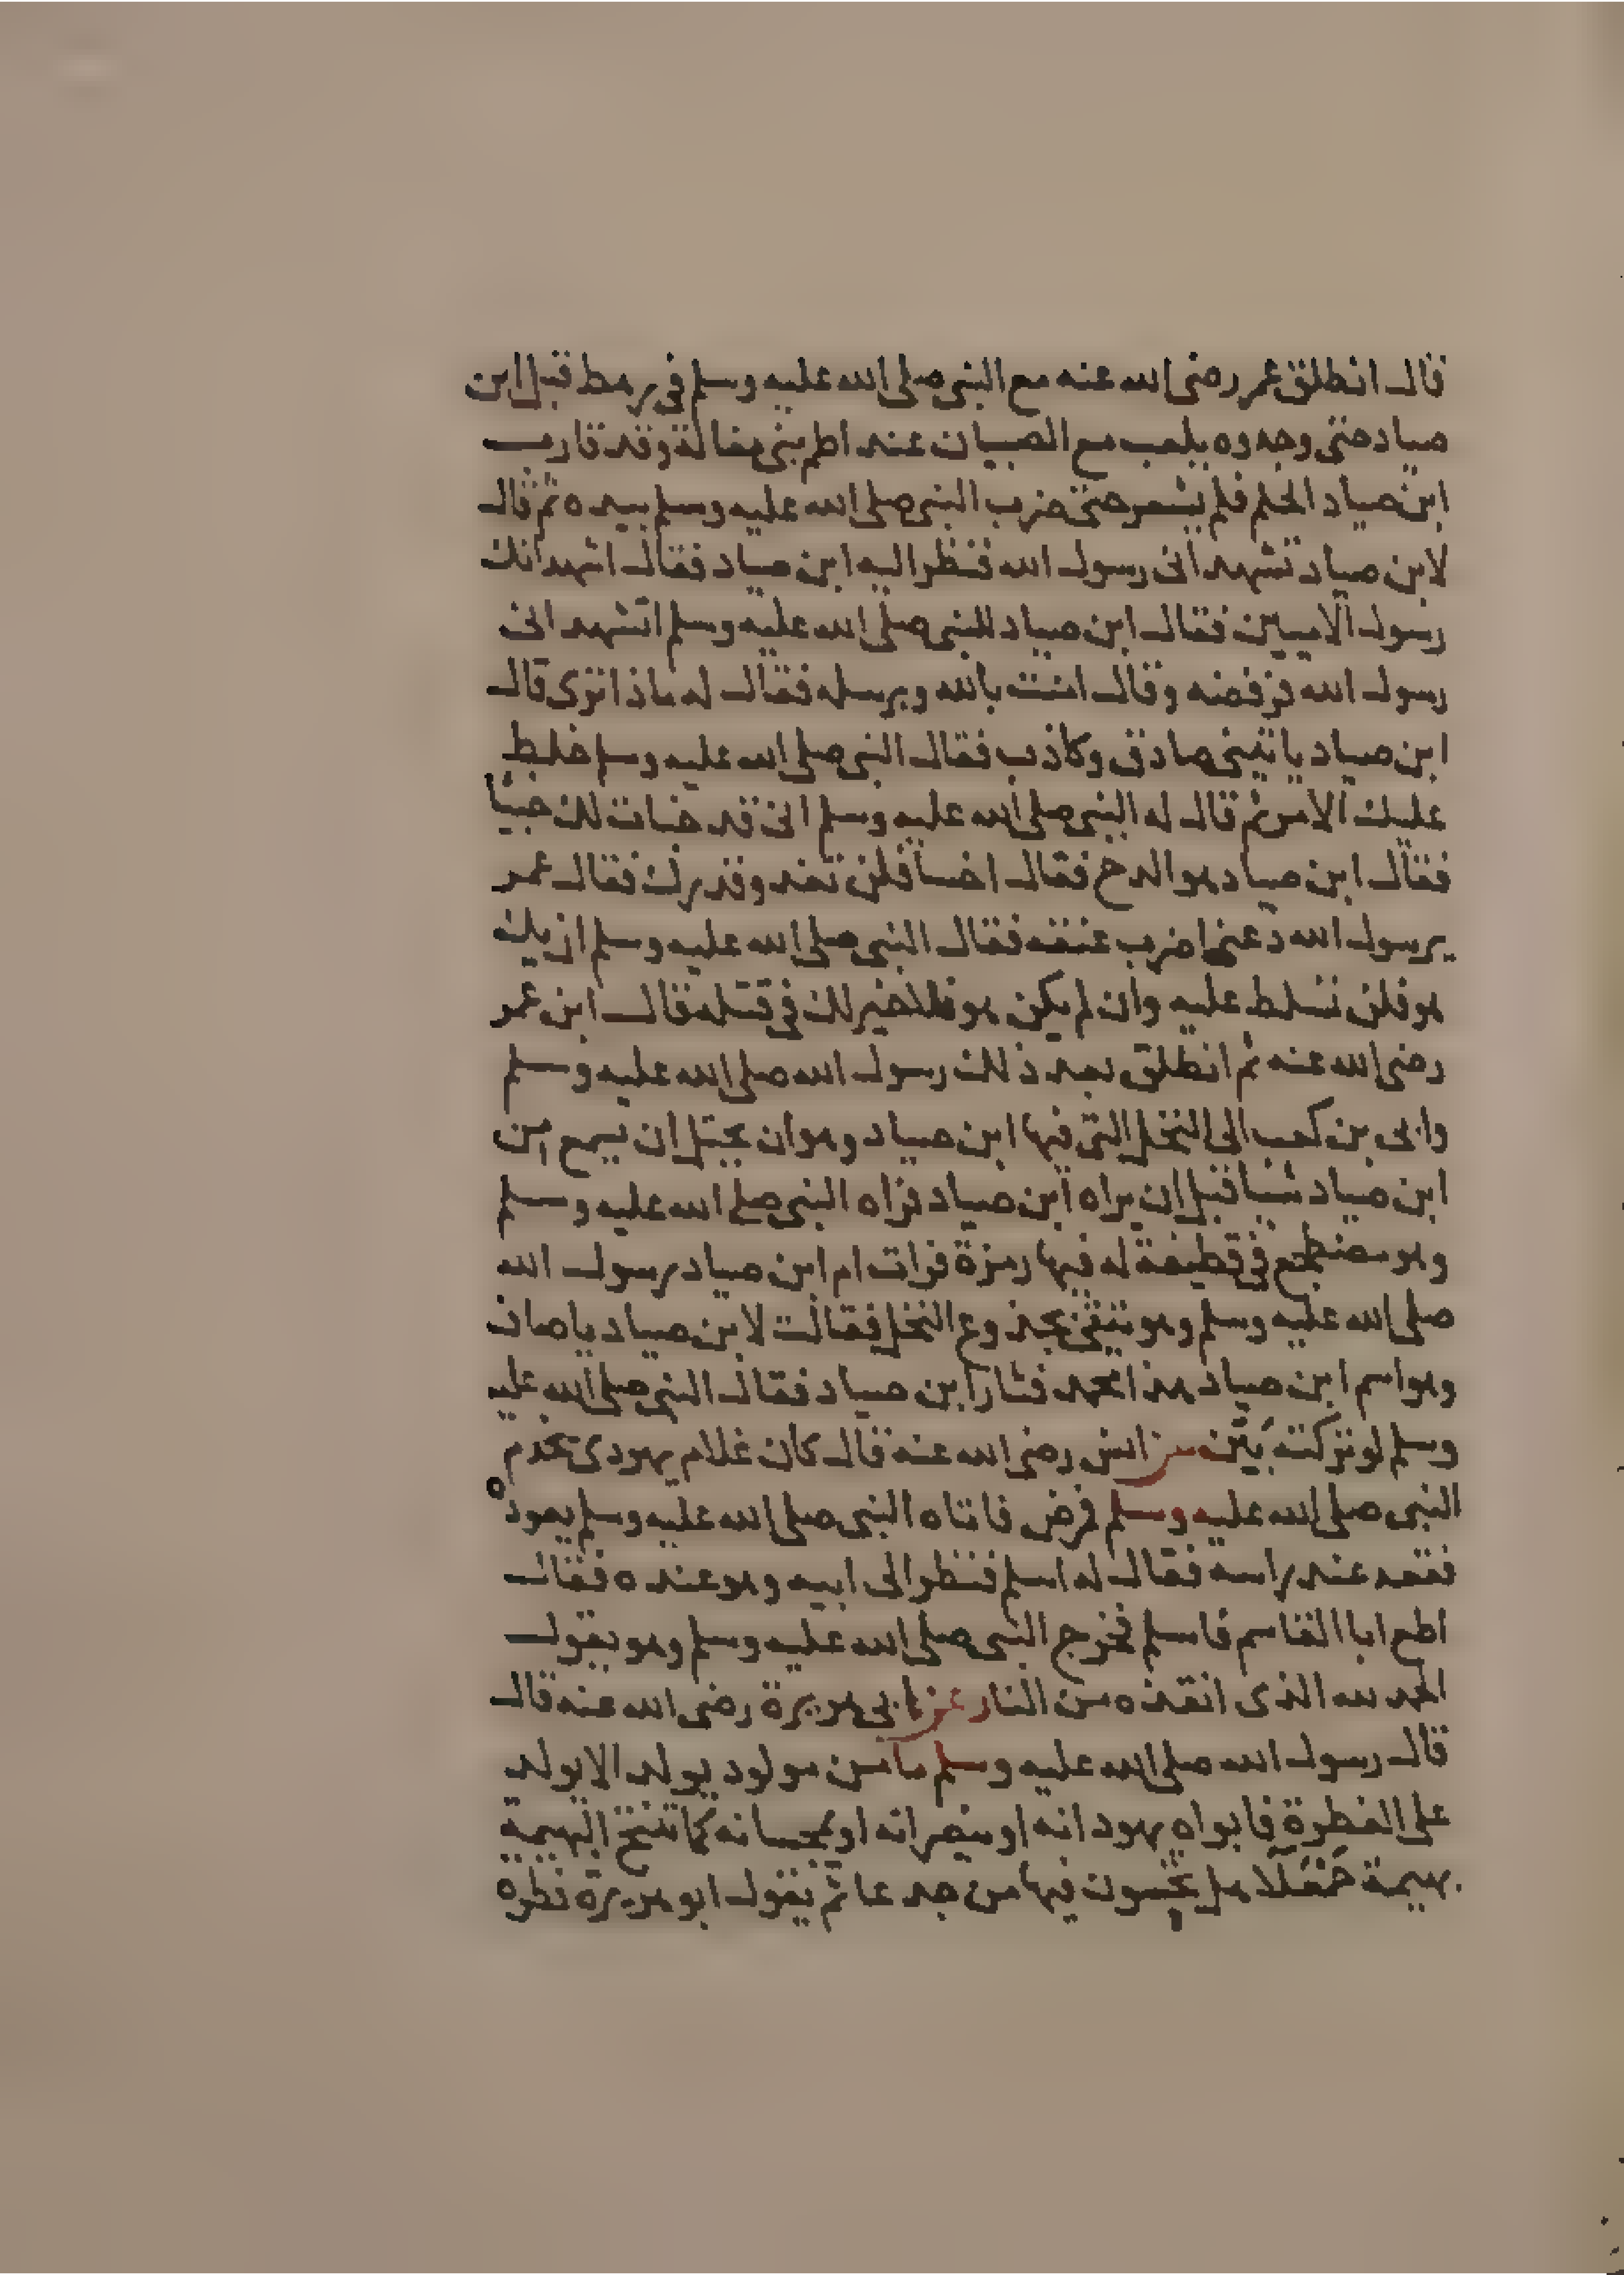 قال انطلق عمر رضى الله عنه مع النبى صلى الله عليه وسلم فى رهط قبل ابن
صياد حتى وجدوه يلعب مع الصبيان عند اطم بنى مغالة وقد قارب
ابن صياد الحلم فلم يشعر حتى ضرب النبى صلى الله عليه وسلم بيده ثم قال
لابن صياد تشهد انى رسول الله فنظر اليه ابن صياد فقال اشهد انك
رسول الاميين فقال ابن صياد للنبى صلى الله عليه وسلم اتشهد انى
رسول الله فرفضه وقال امنت بالله وبرسله فقال له ماذا ترى قال
ابن صياد ياتينى صادق وكاذب فقال النبى صلى الله عليه وسلم خلط
عليك الامر ثم قال له النبى صلى الله عليه وسلم انى قد خبات لك خبيئا
فقال ابن صياد هو الدخ فقال اخسا فلن تعد وقدرك فقال عمر
يرسول الله دعنى اضرب عنقه فقال النبى صلى الله عليه وسلم ان يك
هو فلن تسلط عليه وان لم يكن هو فلا خير لك فى قتله قال ابن عمر
رضى الله عنه ثم انطلق بعد ذلك رسول الله صلى الله عليه وسلم
وابى بن كعب الى النخل التى فيها ابن صياد وهو ان يختل ان يسمع من
ابن صياد شيا قبل ان يراه ابن صياد فراه النبى صلى الله عليه وسلم
وهو مضطجع فى قطيفة له فيها رمزة فرات ام ابن صياد رسول الله
صلى الله عليه وسلم وهو يتقى بجذوع النخل فقالت لابن صياد ياصاف
وهو اسم ابن صياد هذا محمد فثار ابن صياد فقال النبى صلى الله عليه
وسلم لو تركته بين عن انس رضى الله عنه قال كان غلام يهودى يخدم
النبى صلى الله عليه وسلم فمرض فاتاه النبى صلى الله عليه وسلم يعوده
فقعد عند راسه فقال له اسلم فنظر الى ابيه وهو عنده فقال
اطع ابا القاسم فاسلم فخرج النبى صلى الله عليه وسلم وهو يقول
الحمد لله الذى انقذه من النار عن ابى هريرة رضى الله عنه قال
قال رسول الله صلى الله عليه وسلم ما من مولود يولد الا يولد
على الفطرة فابواه يهودانه او ينصرانه او يمجسانه كما تنتج البهيمة
بهيمة جمعا هل تحسون فيها من جدعا ثم يقول ابو هريرة فطره